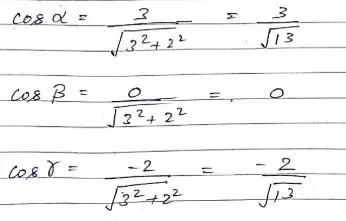 cos α = 3/√(3²+2²) = 3/√13
cos β = 0/√(3²+2²) = 0
cos γ = -2/√(3²+2²) = -2/√13